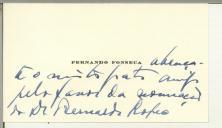 FERNANDO FONSECA abraça-
o muito grato amigo
pelo favor da nomeação
do Dr. Bernardo